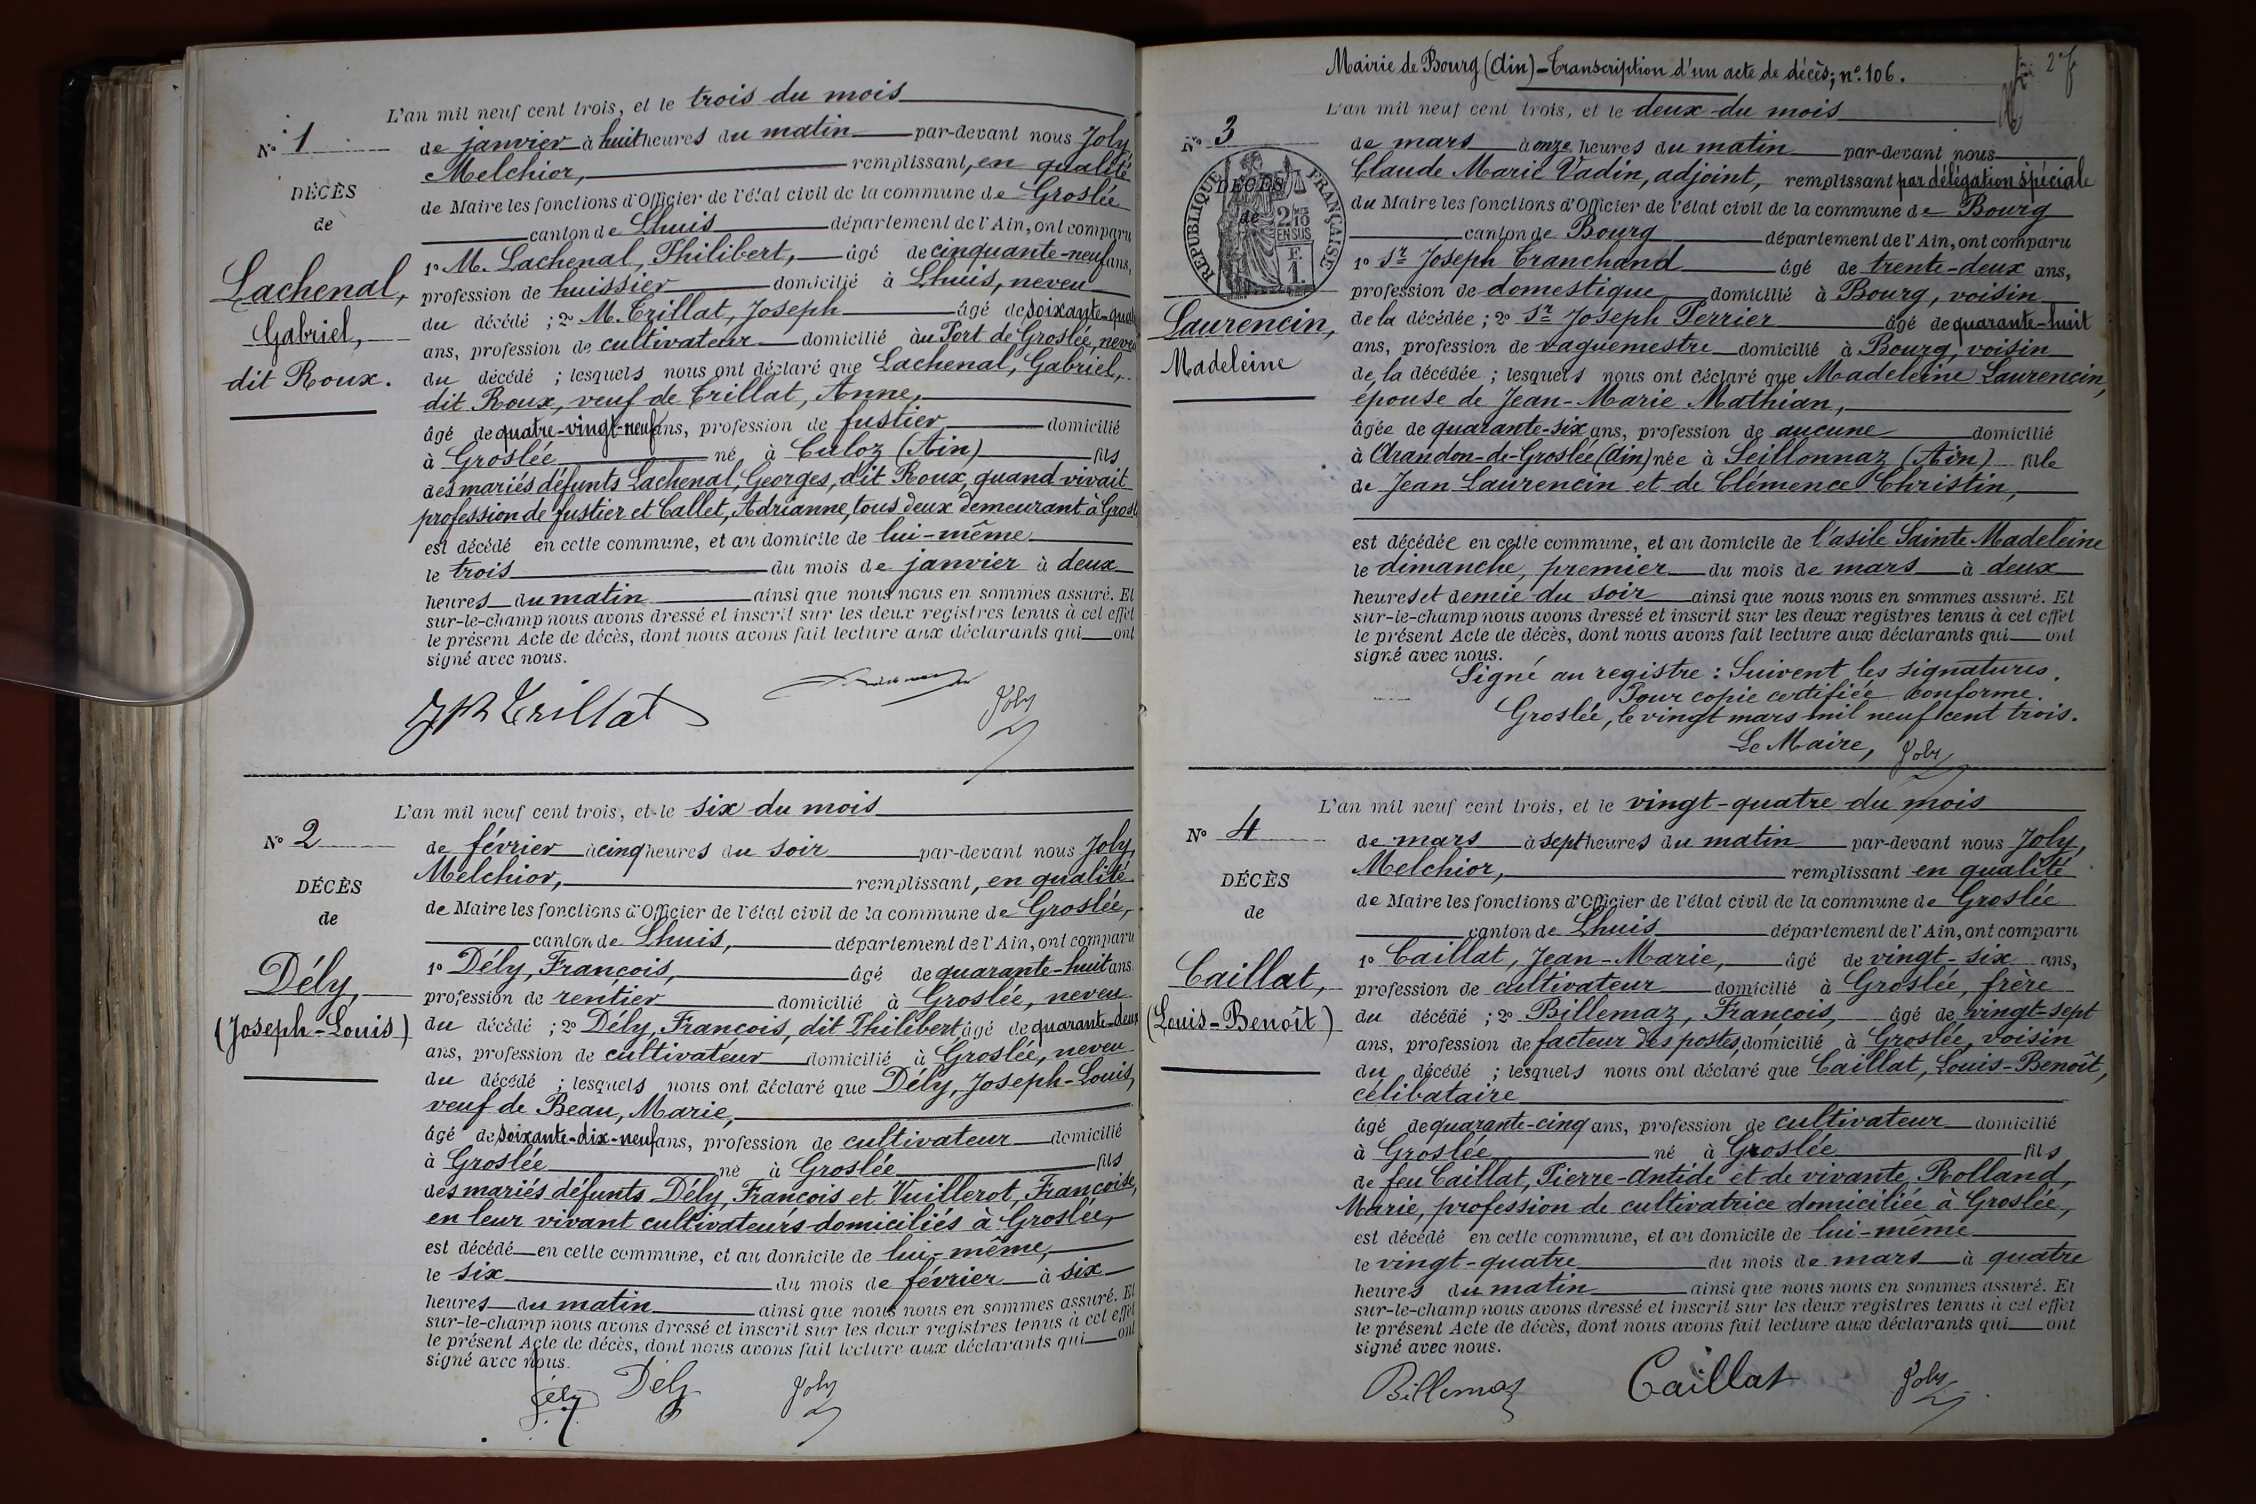 L'an mil neuf cent trois, et le trois du mois
N° 1
de janvier à huit heures du matin par-devant nous Joly
Melchior, remplissant, en qualité
DÉCÈS
de Maire les fonctions d'Officier de l'état civil de la commune de Groslée
de
canton de Lhuis département de l'Ain, ont comparu
1° M. Lachenal, Philibert, âgé de cinquante-neuf ans,
Lachenal,
profession de huissier domicilié à Lhuis, neveu
du décédé ; 2° M. Trillat, Joseph âgé de soixante-quatre
Gabriel,
ans, profession de cultivateur domicilié au Port de Groslée, neveu
dit Roux.
du décédé ; lesquels nous ont déclaré que Lachenal, Gabriel,
dit Roux, veuf de Trillat, Anne,
âgé de quatre-vingt-neuf ans, profession de fustier domicilié
à Groslée né à Culoz (Ain) fils
des mariés défunts Lachenal, Georges, dit Roux, quand vivait
profession de fustier et Callet, Adrianne, tous deux demeurant à Groslée
est décédé en cette commune, et au domicile de lui-même
le trois du mois de janvier à deux
heures du matin ainsi que nous nous en sommes assuré. Et
sur-le-champ nous avons dressé et inscrit sur les deux registres tenus à cet effet
le présent Acte de décès, dont nous avons fait lecture aux déclarants qui ont
signé avec nous.
JPh Trillat
Joly
L'an mil neuf cent trois, et le six du mois
N° 2
de février à cinq heures du soir par-devant nous Joly
Melchior, remplissant, en qualité
DÉCÈS
de Maire les fonctions d'Officier de l'état civil de la commune de Groslée,
de
canton de Lhuis, département de l'Ain, ont comparu
1° Dély, François, âgé de quarante-huit ans
Dély,
profession de rentier domicilié à Groslée, neveu
(Joseph-Louis)
du décédé ; 2° Dély, François, dit Philibert âgé de quarante-deux
ans, profession de cultivateur domicilié à Groslée, neveu
du décédé ; lesquels nous ont déclaré que Dély, Joseph-Louis,
veuf de Beau, Marie,
âgé de soixante-dix-neuf ans, profession de cultivateur domicilié
à Groslée né à Groslée fils
des mariés défunts Dély, François et Vuillerot, Françoise,
en leur vivant cultivateurs domiciliés à Groslée,
est décédé en cette commune, et au domicile de lui-même,
le six du mois de février à six
heures du matin ainsi que nous nous en sommes assuré. Et
sur-le-champ nous avons dressé et inscrit sur les deux registres tenus à cet effet
le présent Acte de décès, dont nous avons fait lecture aux déclarants qui ont
signé avec nous.
Dély Dély Joly
Mairie de Bourg (Ain) - Transcription d'un acte de décès; n° 106.
L'an mil neuf cent trois, et le deux du mois
N° 3
de mars à onze heures du matin par-devant nous
Claude Marie Vadin, adjoint, remplissant par délégation spéciale
RÉPUBLIQUE FRANÇAISE
DÉCÈS
du Maire les fonctions d'Officier de l'état civil de la commune de Bourg
de
2 10 EN SUS
canton de Bourg département de l'Ain, ont comparu
F. 1
1° Sr Joseph Tranchand âgé de trente-deux ans,
profession de domestique domicilié à Bourg, voisin
Laurencin,
de la décédée ; 2° Sr Joseph Perrier âgé de quarante-huit
ans, profession de vaguemestre domicilié à Bourg, voisin
Madeleine
de la décédée ; lesquels nous ont déclaré que Madeleine Laurencin,
épouse de Jean-Marie Mathian,
âgée de quarante-six ans, profession de aucune domicilié
à Arandon-de-Groslée (Ain) née à Seillonnaz (Ain) fille
de Jean Laurencin et de Clémence Christin,
est décédée en cette commune, et au domicile de l'asile Sainte Madeleine
le dimanche, premier du mois de mars à deux
heures et demie du soir ainsi que nous nous en sommes assuré. Et
sur-le-champ nous avons dressé et inscrit sur les deux registres tenus à cet effet
le présent Acte de décès, dont nous avons fait lecture aux déclarants qui ont
signé avec nous.
Signé au registre : Suivent les signatures.
Pour copie certifiée conforme.
Groslée, le vingt mars mil neuf cent trois.
Le Maire, Joly
L'an mil neuf cent trois, et le vingt-quatre du mois
N° 4
de mars à sept heures du matin par-devant nous Joly,
Melchior, remplissant en qualité
DÉCÈS
de Maire les fonctions d'Officier de l'état civil de la commune de Groslée
de
canton de Lhuis département de l'Ain, ont comparu
1° Caillat, Jean-Marie, âgé de vingt-six ans,
Caillat,
profession de cultivateur domicilié à Groslée, frère
(Louis-Benoît)
du décédé ; 2° Billemaz, François, âgé de vingt-sept
ans, profession de facteur des postes, domicilié à Groslée, voisin
du décédé ; lesquels nous ont déclaré que Caillat, Louis-Benoît,
célibataire
âgé de quarante-cinq ans, profession de cultivateur domicilié
à Groslée né à Groslée fils
de feu Caillat, Pierre-Antide et de vivante, Rolland,
Marie, profession de cultivatrice domiciliée à Groslée,
est décédé en cette commune, et au domicile de lui-même
le vingt-quatre du mois de mars à quatre
heures du matin ainsi que nous nous en sommes assuré. Et
sur-le-champ nous avons dressé et inscrit sur les deux registres tenus à cet effet
le présent Acte de décès, dont nous avons fait lecture aux déclarants qui ont
signé avec nous.
Billemaz Caillat Joly